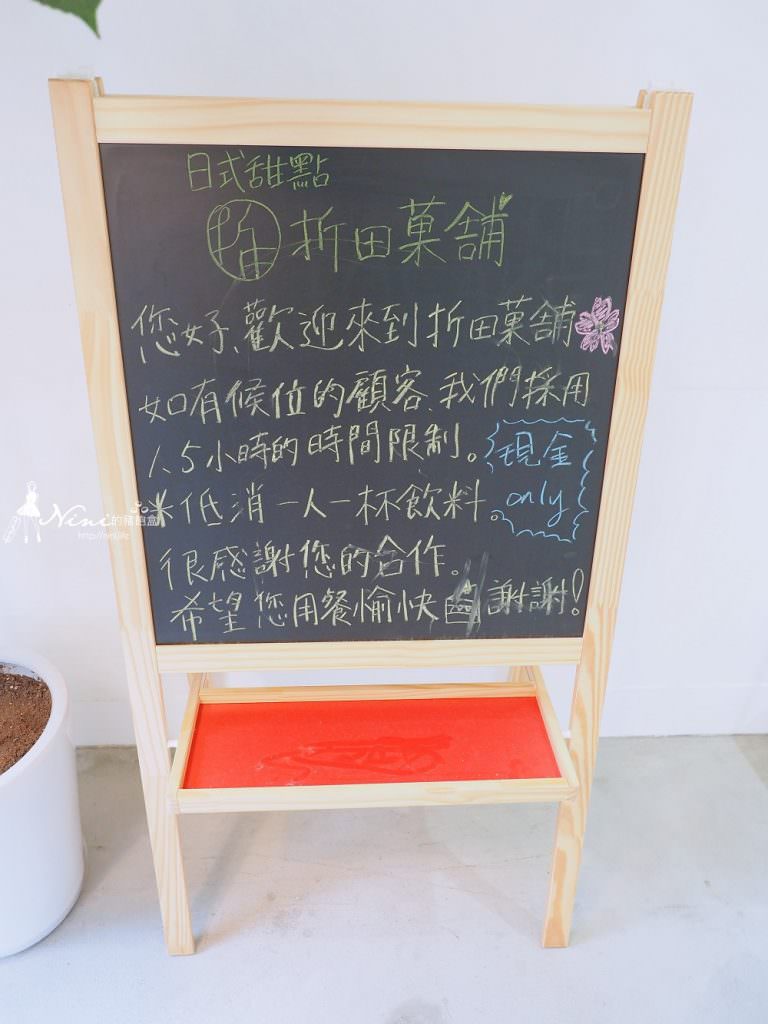 日式甜點
折田菓舖
您好、歡迎來到折田菓舖
如有候位的顧客、我們採用
1.5小時的時間限制。
現金
only
※低消一人一杯飲料。
很感謝您的合作。
希望您用餐愉快 謝謝!
Nini的隨食盒